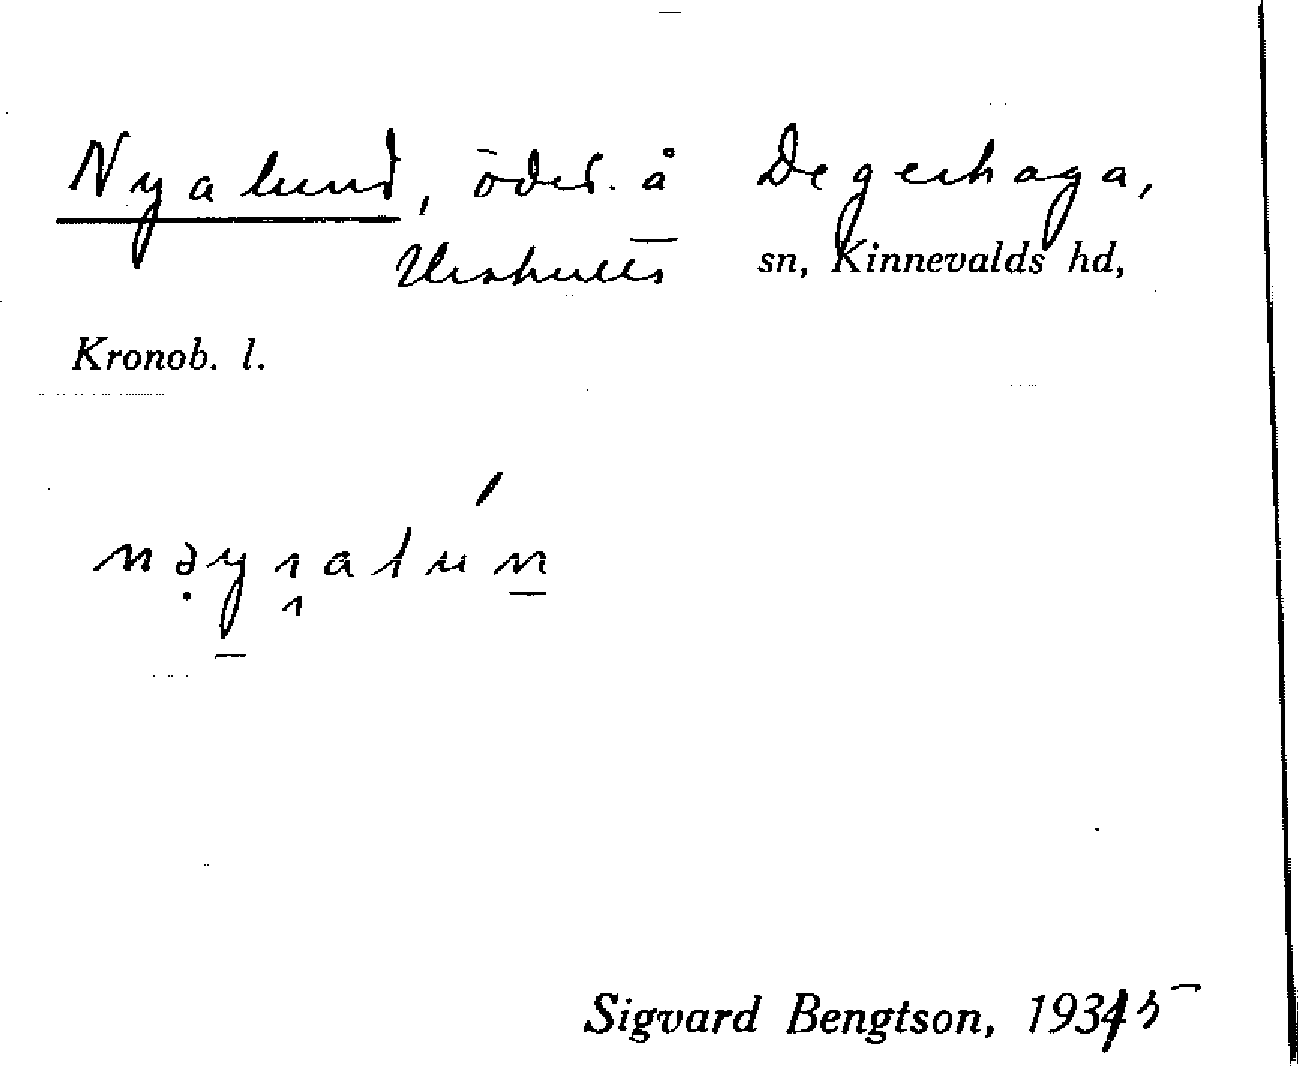 Nyalund, ödesl. å Degerhaga,
Urshults sn, Kinnevalds hd,
Kronob. l.
Sigvard Bengtson, 1935